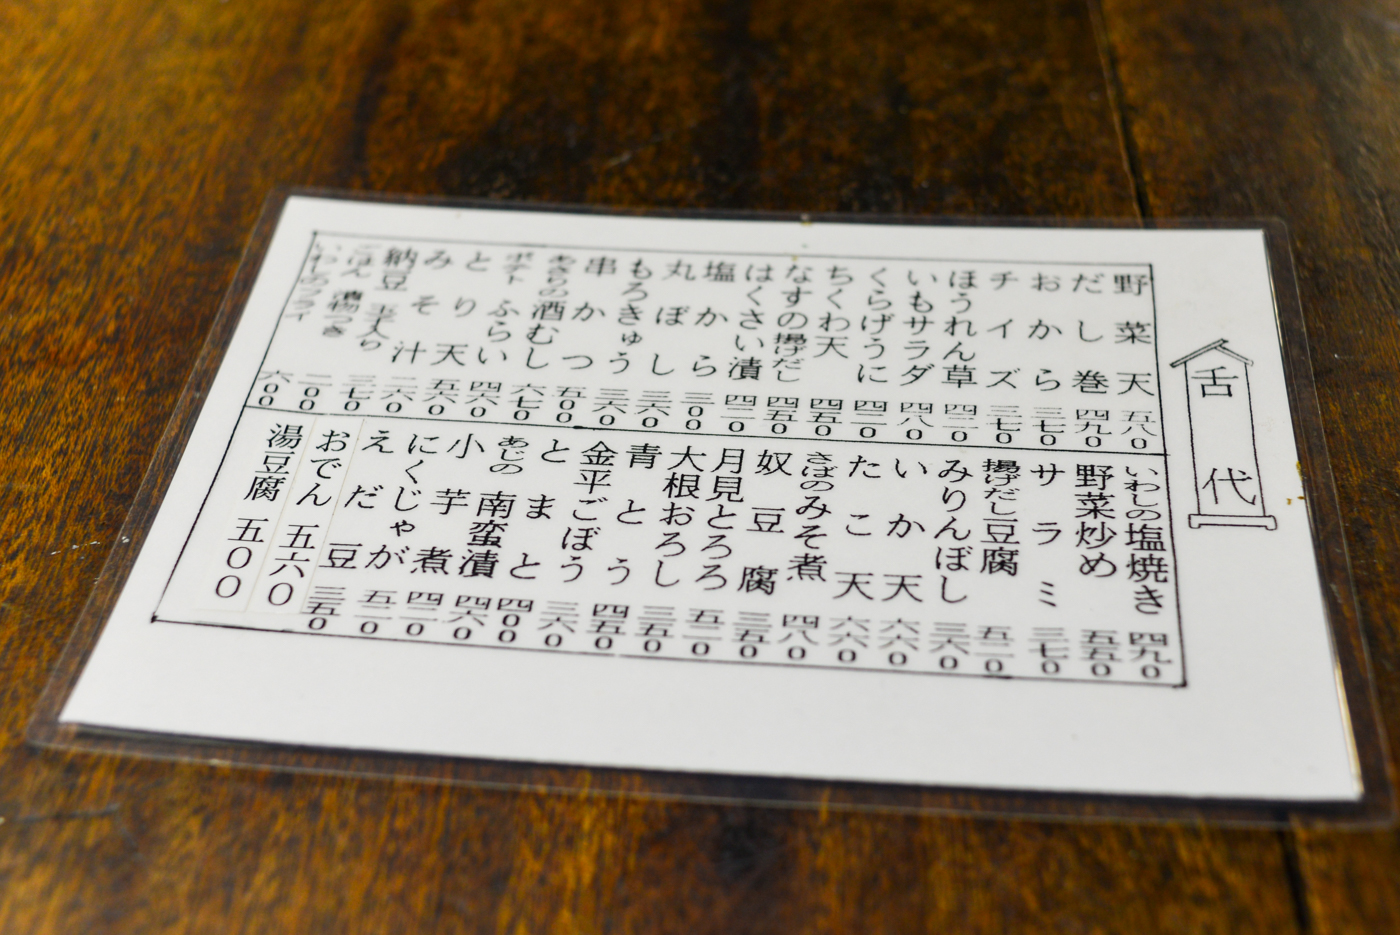 舌代
野菜天 五八0
だし巻 四九0
おから 三七0
チイズ 三七0
ほうれん草 四二0
いもサラダ 四八0
くらげうに 四二0
ちくわ天 四五0
なすの揚げだし 四五0
はくさい漬 四二0
塩から 三00
丸ぼし 三六0
もろきゅう 三六0
串かつ 五00
あさりの酒むし 六七0
ポテトふらい 四六0
とり天 五六0
みそ汁 二六0
納豆 玉子入り 三七0
ごはん 漬物つき 二00
いわしのフライ 六00
いわしの塩焼き 四九0
野菜炒め 五五0
サラミ 三七0
揚げだし豆腐 五二0
みりんぼし 三六0
いか天 六六0
たこ天 六六0
さばのみそ煮 四八0
奴豆腐 三五0
月見とろろ 五二0
大根おろし 三五0
青とう 四五0
金平ごぼう 三六0
とまと 四00
あじの南蛮漬 四六0
小芋煮 四二0
にくじゃが 五二0
えだ豆 三五0
おでん 五六0
湯豆腐 五00